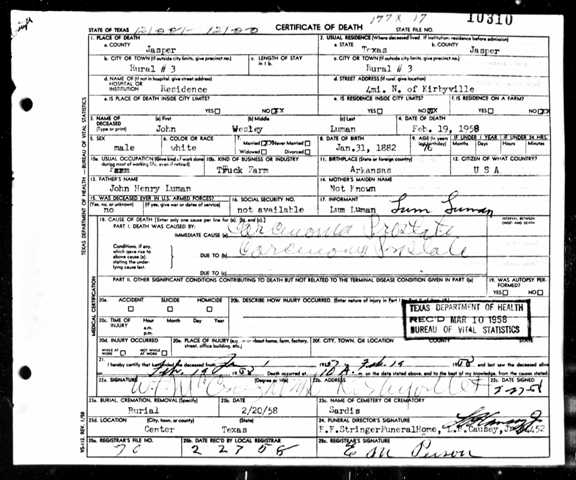 177X 17
10310
STATE OF TEXAS
CERTIFICATE OF DEATH
1. PLACE OF DEATH
2. USUAL RESIDENCE (Where deceased lived. If institution: residence before admission)
a. COUNTY Jasper
a. STATE Texas b. COUNTY Jasper
b. CITY OR TOWN (If outside city limits, give precinct no.) Rural # 3
c. LENGTH OF STAY in 1 b.
c. CITY OR TOWN (If outside city limits, give precinct no.) Rural # 3
d. NAME OF (If not in hospital, give street address) HOSPITAL OR INSTITUTION Residence
d. STREET ADDRESS (If rural, give location) 4mi. N. of Kirbyville
e. IS PLACE OF DEATH INSIDE CITY LIMITS? YES NO
e. IS RESIDENCE INSIDE CITY LIMITS? YES NO
f. IS RESIDENCE ON A FARM? YES NO
3. NAME OF DECEASED (Type or print) (a) First John (b) Middle Wesley (c) Last Luman
4. DATE OF DEATH Feb. 19, 1958
5. SEX male
6. COLOR OR RACE white
7. Married Never Married Widowed Divorced
8. DATE OF BIRTH Jan.31, 1882
9. AGE 76
IF UNDER 1 YEAR Months Days
IF UNDER 24 HRS. Hours Minutes
10a. USUAL OCCUPATION (Give kind of work done during most of working life, even if retired)
10b. KIND OF BUSINESS OR INDUSTRY Truck Farm
11. BIRTHPLACE (State or foreign country) Arkansas
12. CITIZEN OF WHAT COUNTRY? U S A
13. FATHER'S NAME John Henry Luman
14. MOTHER'S MAIDEN NAME Not Known
15. WAS DECEASED EVER IN U.S. ARMED FORCES? no
16. SOCIAL SECURITY NO. not available
17. INFORMANT Lum Luman Lum Luman
18. CAUSE OF DEATH [Enter only one cause per line for (a), (b), and (c).]
INTERVAL BETWEEN ONSET AND DEATH
PART I. DEATH WAS CAUSED BY:
IMMEDIATE CAUSE (a) Carcinoma Prostate
Conditions, if any, which gave rise to above cause (a) stating the underlying cause last.
DUE TO (b) Carcinoma Prostate
DUE TO (c)
PART II. OTHER SIGNIFICANT CONDITIONS CONTRIBUTING TO DEATH BUT NOT RELATED TO THE TERMINAL DISEASE CONDITION GIVEN IN PART I(a)
19. WAS AUTOPSY PERFORMED? YES NO
20a. ACCIDENT SUICIDE HOMICIDE
20b. DESCRIBE HOW INJURY OCCURRED.
20c. TIME OF INJURY Hour Month Day Year a.m. p.m.
TEXAS DEPARTMENT OF HEALTH
REC'D MAR 10 1958
BUREAU OF VITAL STATISTICS
20d. INJURY OCCURRED WHILE AT WORK NOT WHILE AT WORK
20e. PLACE OF INJURY (e.g., in or about home, farm, factory, street, office building, etc.)
20f. CITY, TOWN, OR LOCATION COUNTY STATE
21. I hereby certify that I attended the deceased from
22a. SIGNATURE (Degree or title)
22b. ADDRESS
22c. DATE SIGNED
23a. BURIAL, CREMATION, REMOVAL (Specify) Burial
23b. DATE 2/20/58
23c. NAME OF CEMETERY OR CREMATORY Sardis
23d. LOCATION (City, town, or county) (State) Center Texas
24. FUNERAL DIRECTOR'S SIGNATURE
E.F.StringerFuneralHome, L.F.Causey,Jr.
25a. REGISTRAR'S FILE NO.
25b. DATE REC'D BY LOCAL REGISTRAR 2 27 58
25c. REGISTRAR'S SIGNATURE
TEXAS DEPARTMENT OF HEALTH - BUREAU OF VITAL STATISTICS
MEDICAL CERTIFICATION